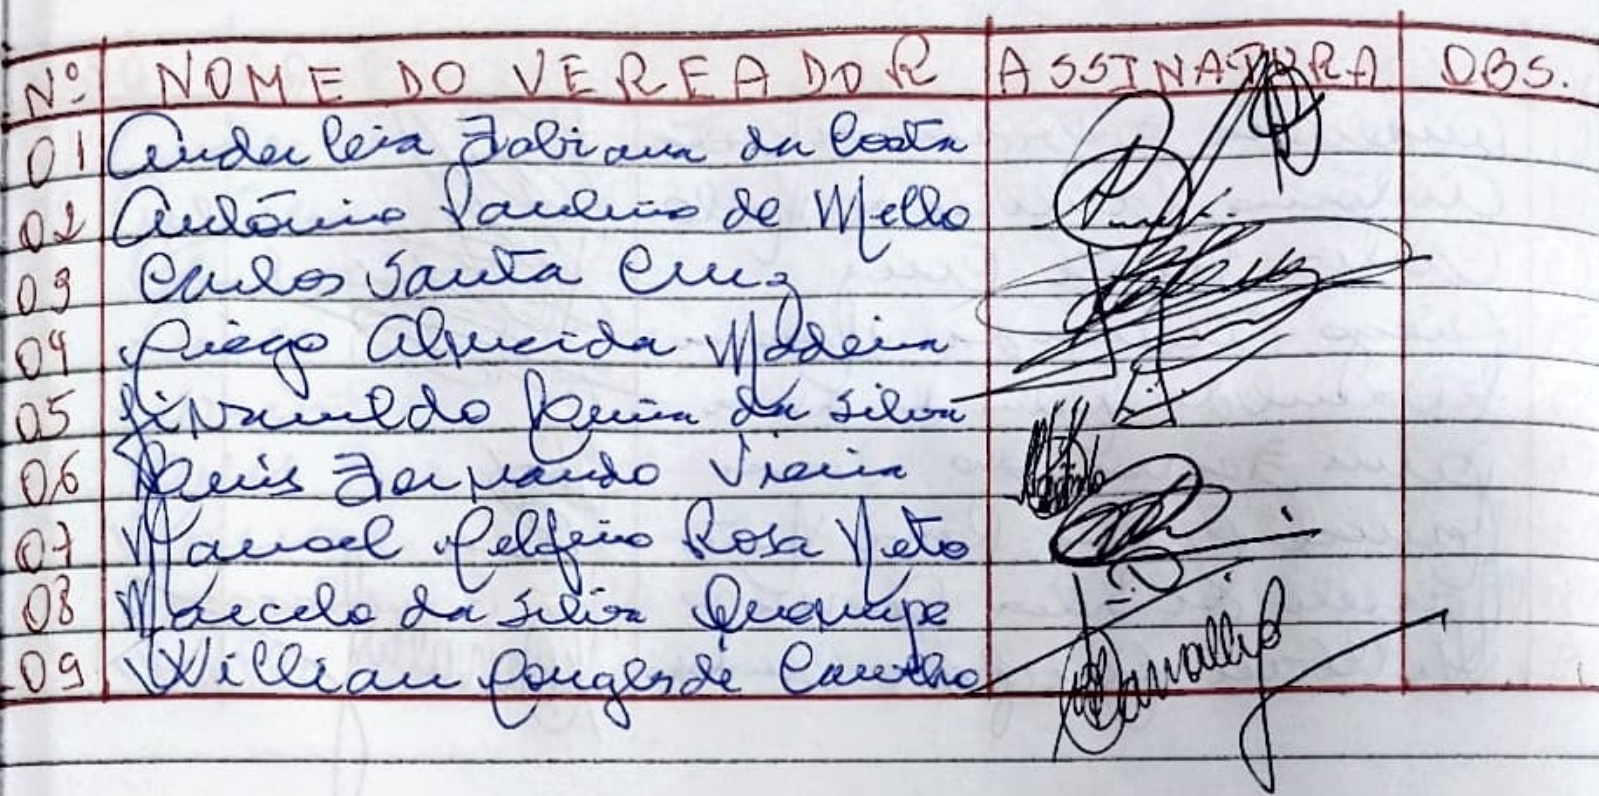 Nº NOME DO VEREADOR ASSINATURA OBS.
01 Anderleia Fabiana da Costa
02 Antônio Paulino de Mello
03 Carlos Santa Cruz
04 Diego Almeida Madeira
05 Givanildo da Silva
06 Luis Fernando Vieira
07 Manoel Delfino Rosa Neto
08 Marcelo da Silva
09 Willian de Carvalho Carvalho